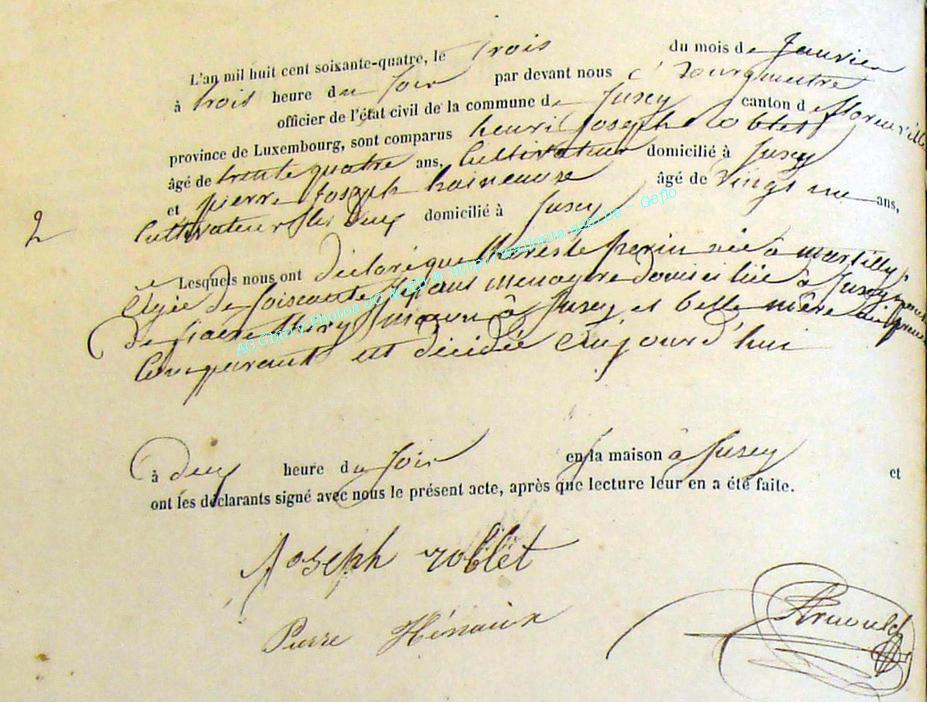 L'an mil huit cent soixante-quatre, le trois du mois de Janvier
à trois heure du soir par devant nous Bourgmestre
officier de l'état civil de la commune de Jusey canton de florenville
province de Luxembourg, sont comparus henri joseph roblet
âgé de trente quatre ans, Cultivateur domicilié à Jusey
et pierre Joseph âgé de vingt ans,
2
Cultivateur les deux domicilié à Jusey
Lesquels nous ont déclaré que perin née à
agée de soisante ans menagere domiciliée à Jusey
de à Jusey et belle mère au premier
Comparant est décédée aujourd'hui
à deux heure du soir en la maison à Jusey et
ont les déclarants signé avec nous le présent acte, après que lecture leur en a été faite.
Joseph roblet
Pierre
Arnould